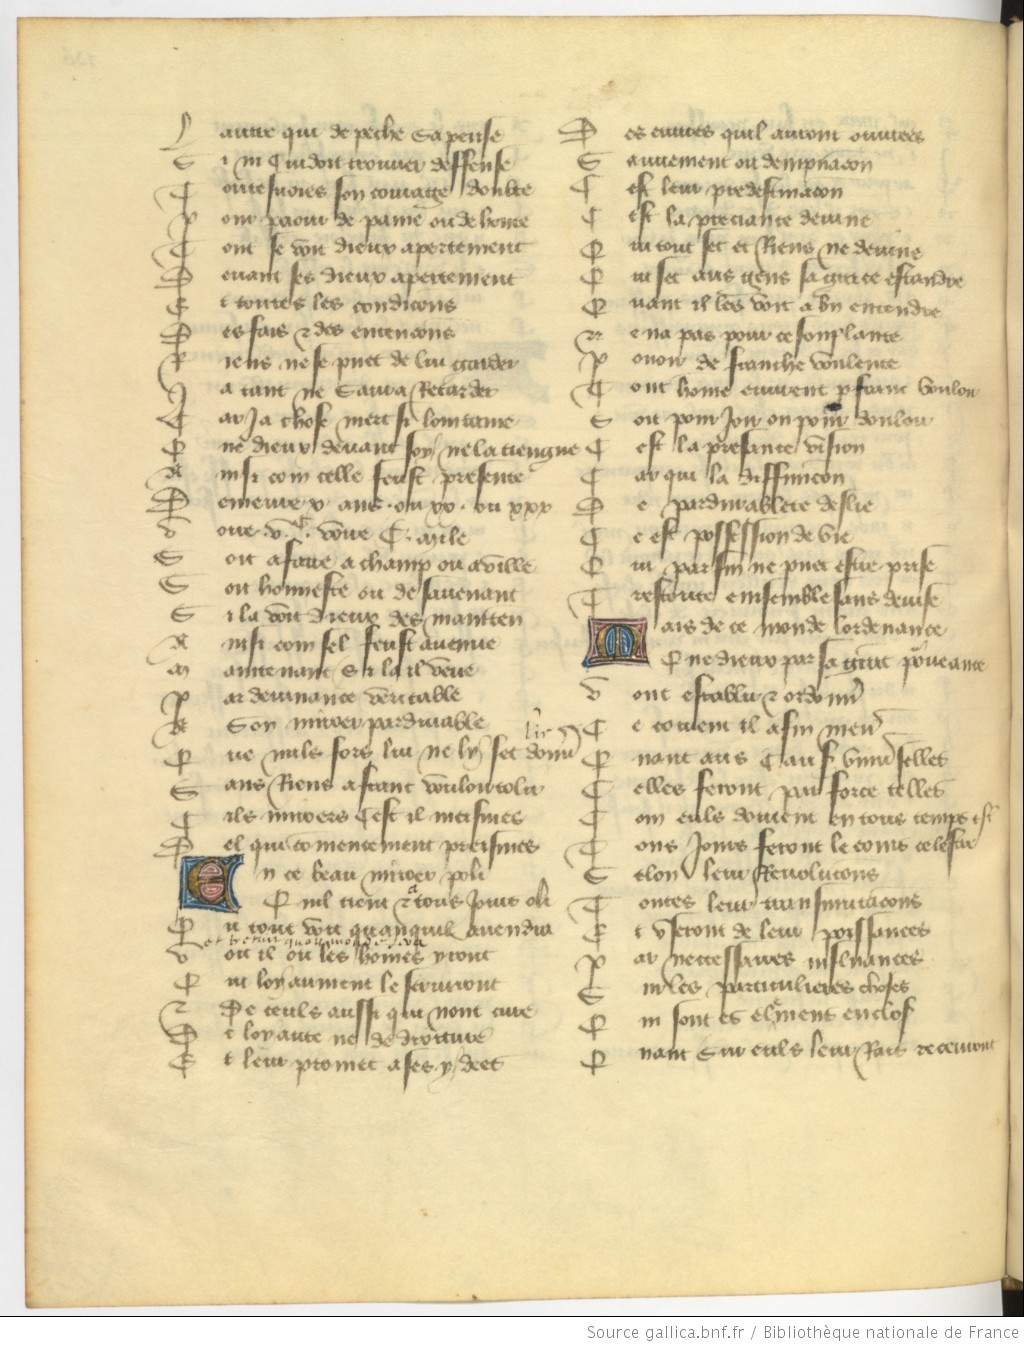 L autre qui de peche sa pense
S i ni cuidoit trouver deffense
C outesvoies son courage doubte
P our paour de paine ou de honte
T out se voit dieux apertement
D evant ses dieux apertement
E t toutes les condicons
D es fais et des entencons
R iens ne se puet de lui garder
J a tant ne saura retarder
C ar ja chose niert si lointaine
Q ue dieux devant soy ne la tiengne
A insi com celle feust presente
D emeure x ans ou xx ou xxx
V oire v.c voire C. mile
S oit a faire a champ ou a ville
S oit honneste ou desavenant
S i la voit dieux des maintten
A insi com sel feust avenue
M aintenant si la il veue
P ar demonstrance veritable
A son miroer pardurable
Q ue nuls fors lui ne ly scet donner
S ans riens a franc vouloir tolir
C ils miroers cest il meismes
D el qui commencement preismes
E n ce beau miroer poli
Q uil tient et tous jours oli
Q u tout voit quanquil avendra
V oit il ou les homes yront
Q ui loyaument le serviront
Z De ceuls aussi qui nont cure
D e loyaute ne de droiture
E t leur promet a ses ydees
D es euvres quil auront ouvrees
S auvement ou dempnacon
C est leur predestinacon
C est la presciance devine
Q ui tout scet et riens ne devine
Q ui scet aus gens sa grace estandre
Q uant il les voit a bien entendre
N e na pas pour ce souplante
P ovoir de franche voulente
T out home euvrent p franc voulou
S oit pour joir ou pour douloir
C est la presante vision
C ar qui la diffinicon
D e pardurablete deslie
C e est possession de vie
Q ui par fin ne puet estre prise
T restoute ensemble sans devise
M ais de ce monde lordenance
Q ue dieux par sa grant pourveance
V ont establir et ordonner
C e convient il a fin mener
Q uant aus causes univrselles
C elles feront par force telles
C om euls doivent en tous temps estr
T ous jours feront le cours celestie
S elon leur revolucons
T outes leur transmutacons
E t useront de leur poissances
P ar neccessaires influances
S ur les particulieres choses
Q ui sont es element enclos
Q uant sur euls leur rais recevront
Source gallica.bnf.fr / Bibliothèque nationale de France